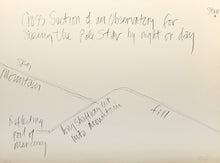 Cross Section of an Observatory for
Seeing The Pole Star by night or day
Star
Mountain
Reflecting
pool of
mercury
long shaft cut
into Mountain
fill